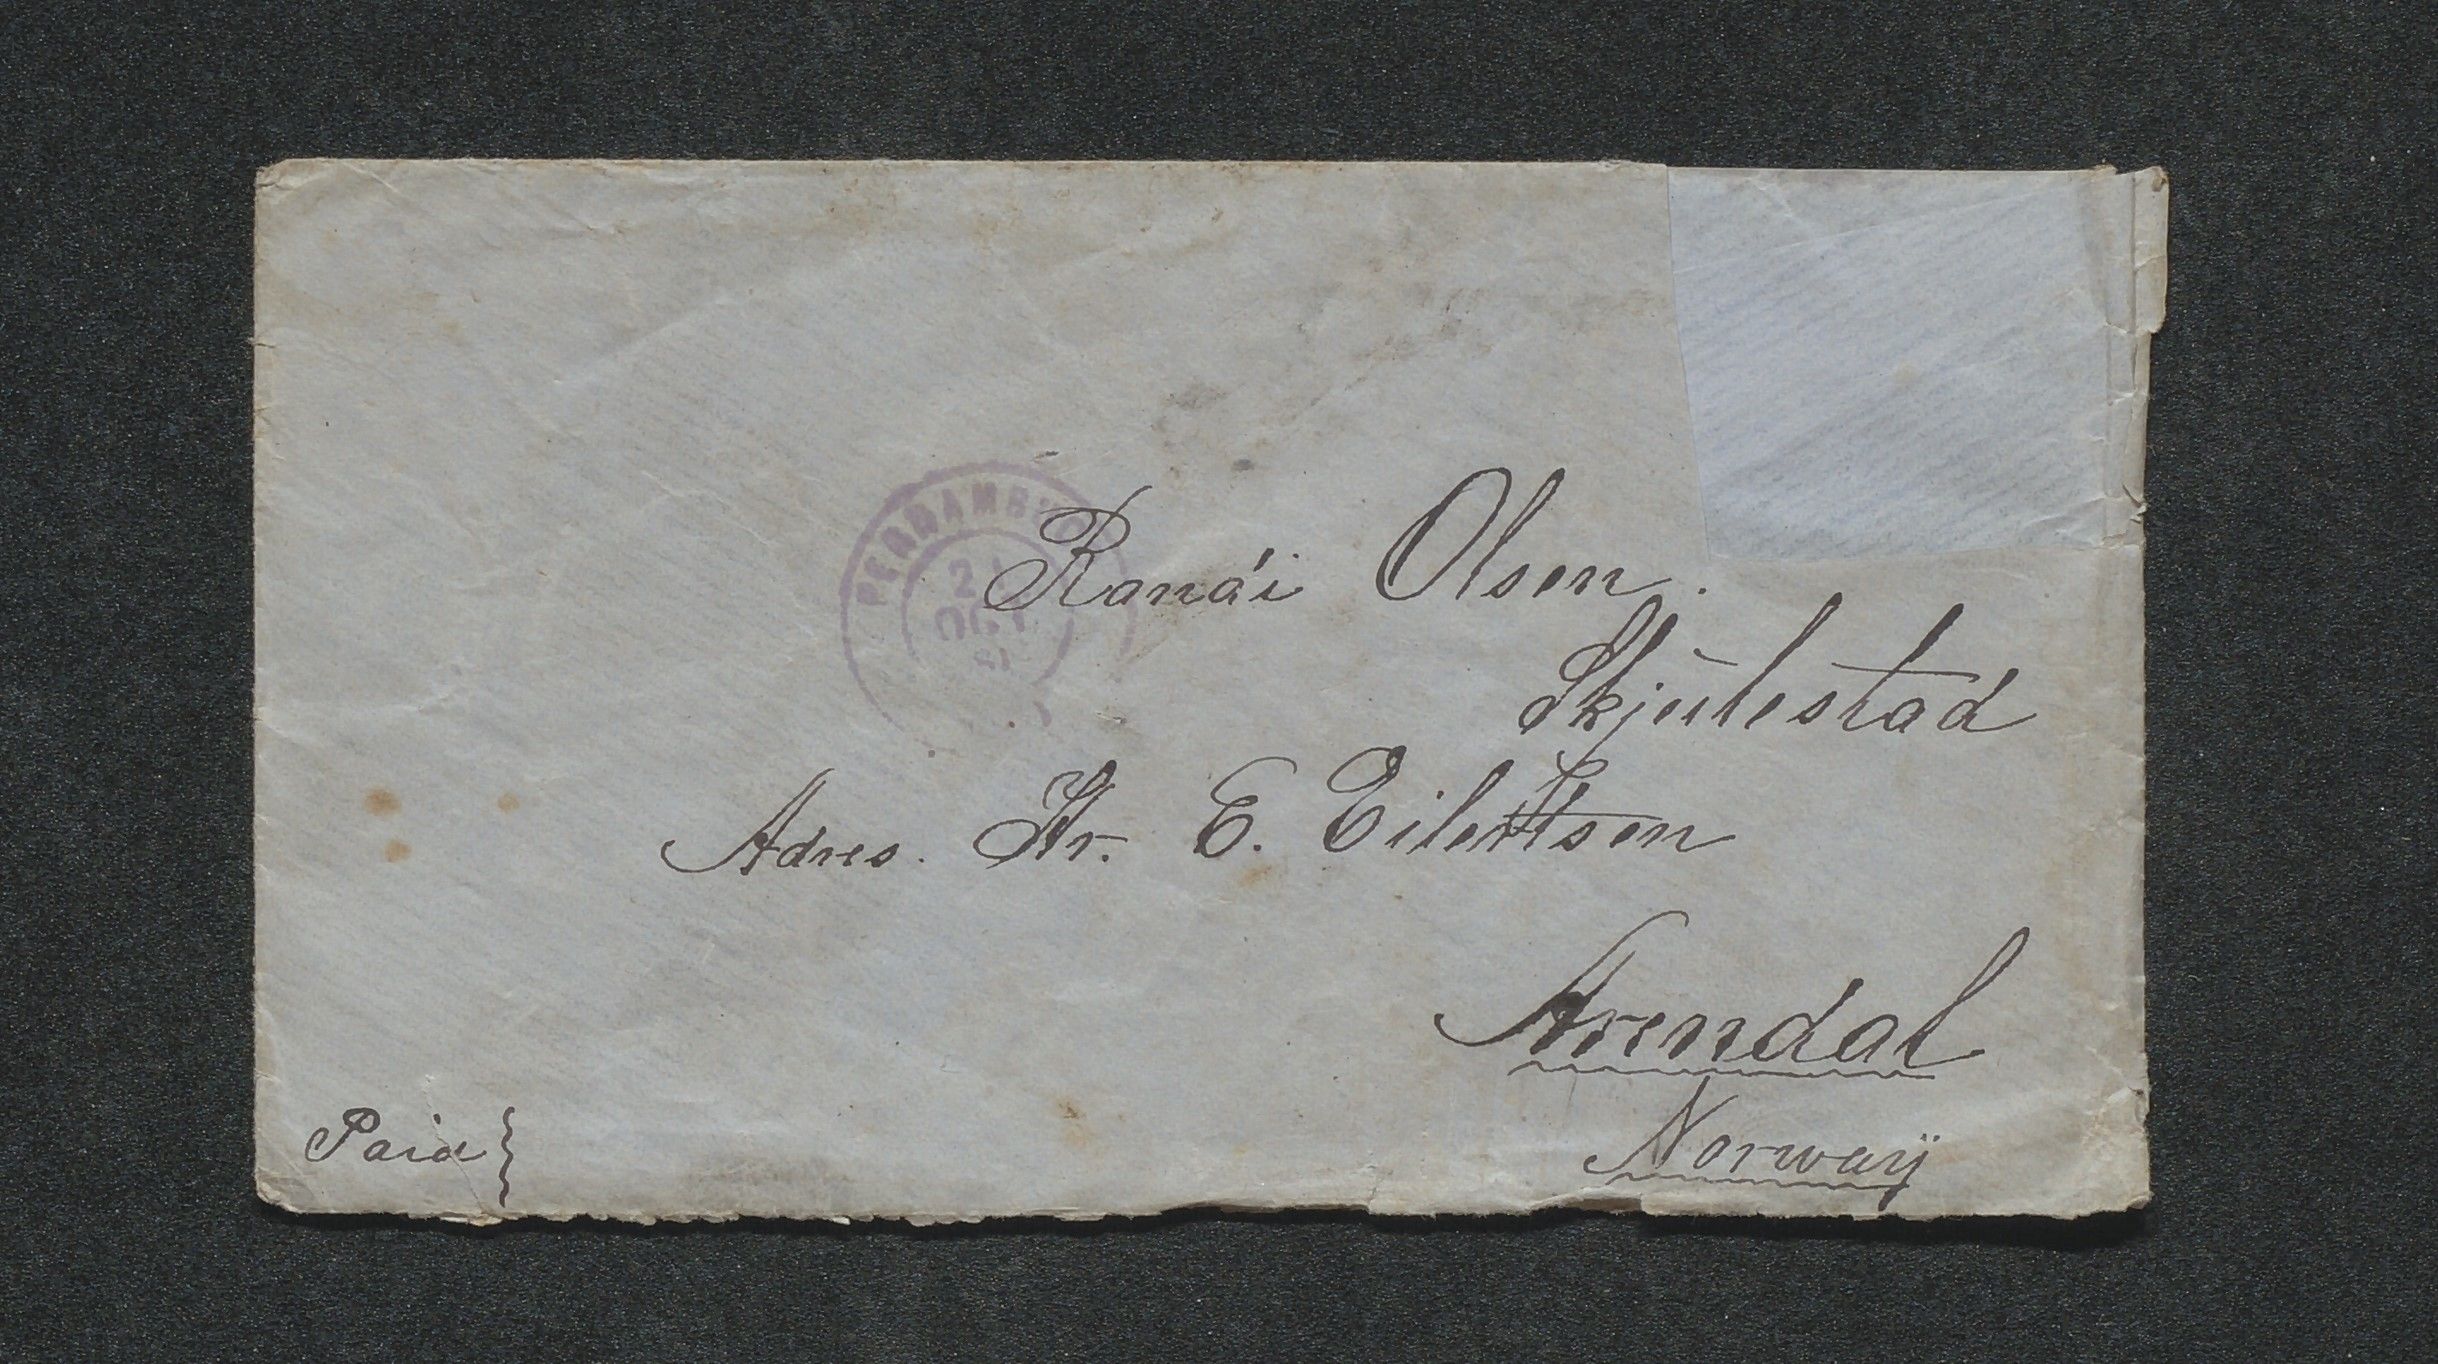 PERNAMBUCO
21
OCT
81
Ranái Olsen.
Skjulestad
Adres. Hr. E. Eilertsen
Arendal
Norway
Paid